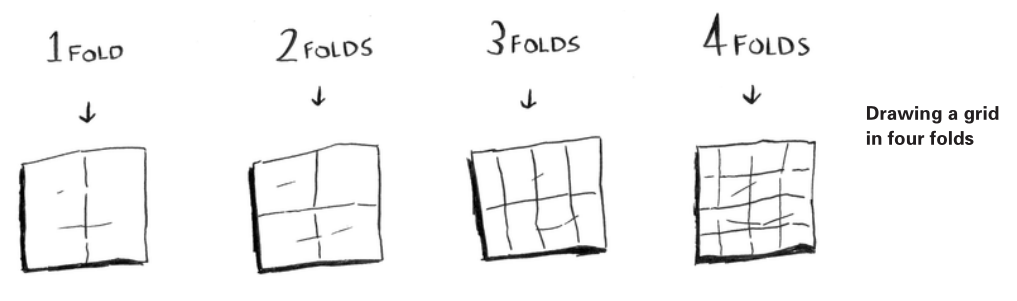 1 FOLD
2 FOLDS
3 FOLDS
4 FOLDS
Drawing a grid
in four folds